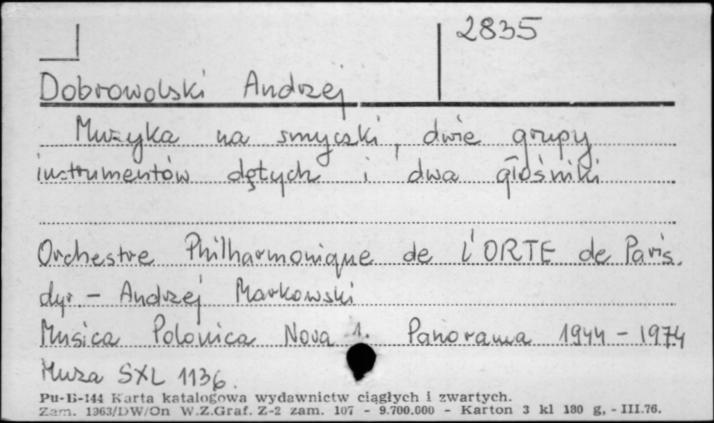 2835
Dobrowolski Andrzej
Muzyka na smyczki, dwie grupy
instrumentów dętych i dwa głośniki
Orchestre Philharmonique de l'ORTE de Paris.
dyr. - Andrzej Markowski
Musica Polonica Nova 1. Panorama 1944 - 1974
Muza SXL 1136.
Pu-B-144 Karta katalogowa wydawnictw ciągłych i zwartych.
Zam. 1363/DW/On W.Z.Graf. Z-2 zam. 107 - 9.700.000 - Karton 3 kl 180 g, - III.76.